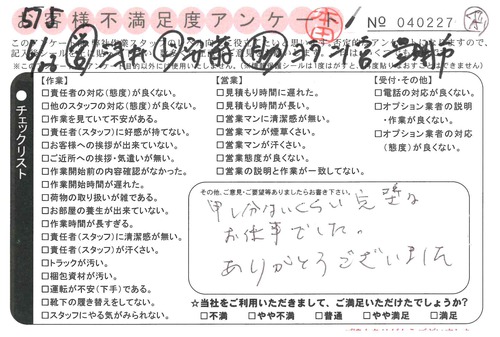 お客様不満足度アンケート
No 040227
チェックリスト
【作業】
□責任者の対応(態度)が良くない。
□他のスタッフの対応(態度)が良くない。
□作業を見ていて不安がある。
□責任者(スタッフ)に好感が持てない。
□お客様への挨拶が出来ていない。
□ご近所への挨拶・気遣いが無い。
□作業開始前の内容確認がなかった。
□作業開始時間が遅れた。
□荷物の取り扱いが雑である。
□お部屋の養生が出来ていない。
□作業時間が長すぎる。
□責任者(スタッフ)に清潔感が無い。
□責任者(スタッフ)が汗くさい。
□トラックが汚い。
□梱包資材が汚い。
□運転が不安(下手)である。
□靴下の履き替えをしてない。
□スタッフにやる気がみられない。
【営業】
□見積もり時間に遅れた。
□見積もり時間が長い。
□営業マンに清潔感が無い。
□営業マンが煙草くさい。
□営業マンが汗くさい。
□営業態度が良くない。
□営業の説明と作業が一致してない。
【受付・その他】
□電話の対応が良くない。
□オプション業者の説明
・作業が良くない。
□オプション業者の対応
(態度)が良くない。
その他、ご意見・ご要望等ありましたらお書き下さい。
申し分ないくらい完璧な
お仕事でした。
ありがとうございました
☆当社をご利用いただきまして、ご満足いただけたでしょうか?
□不満 □やや不満 □普通 □やや満足 □満足